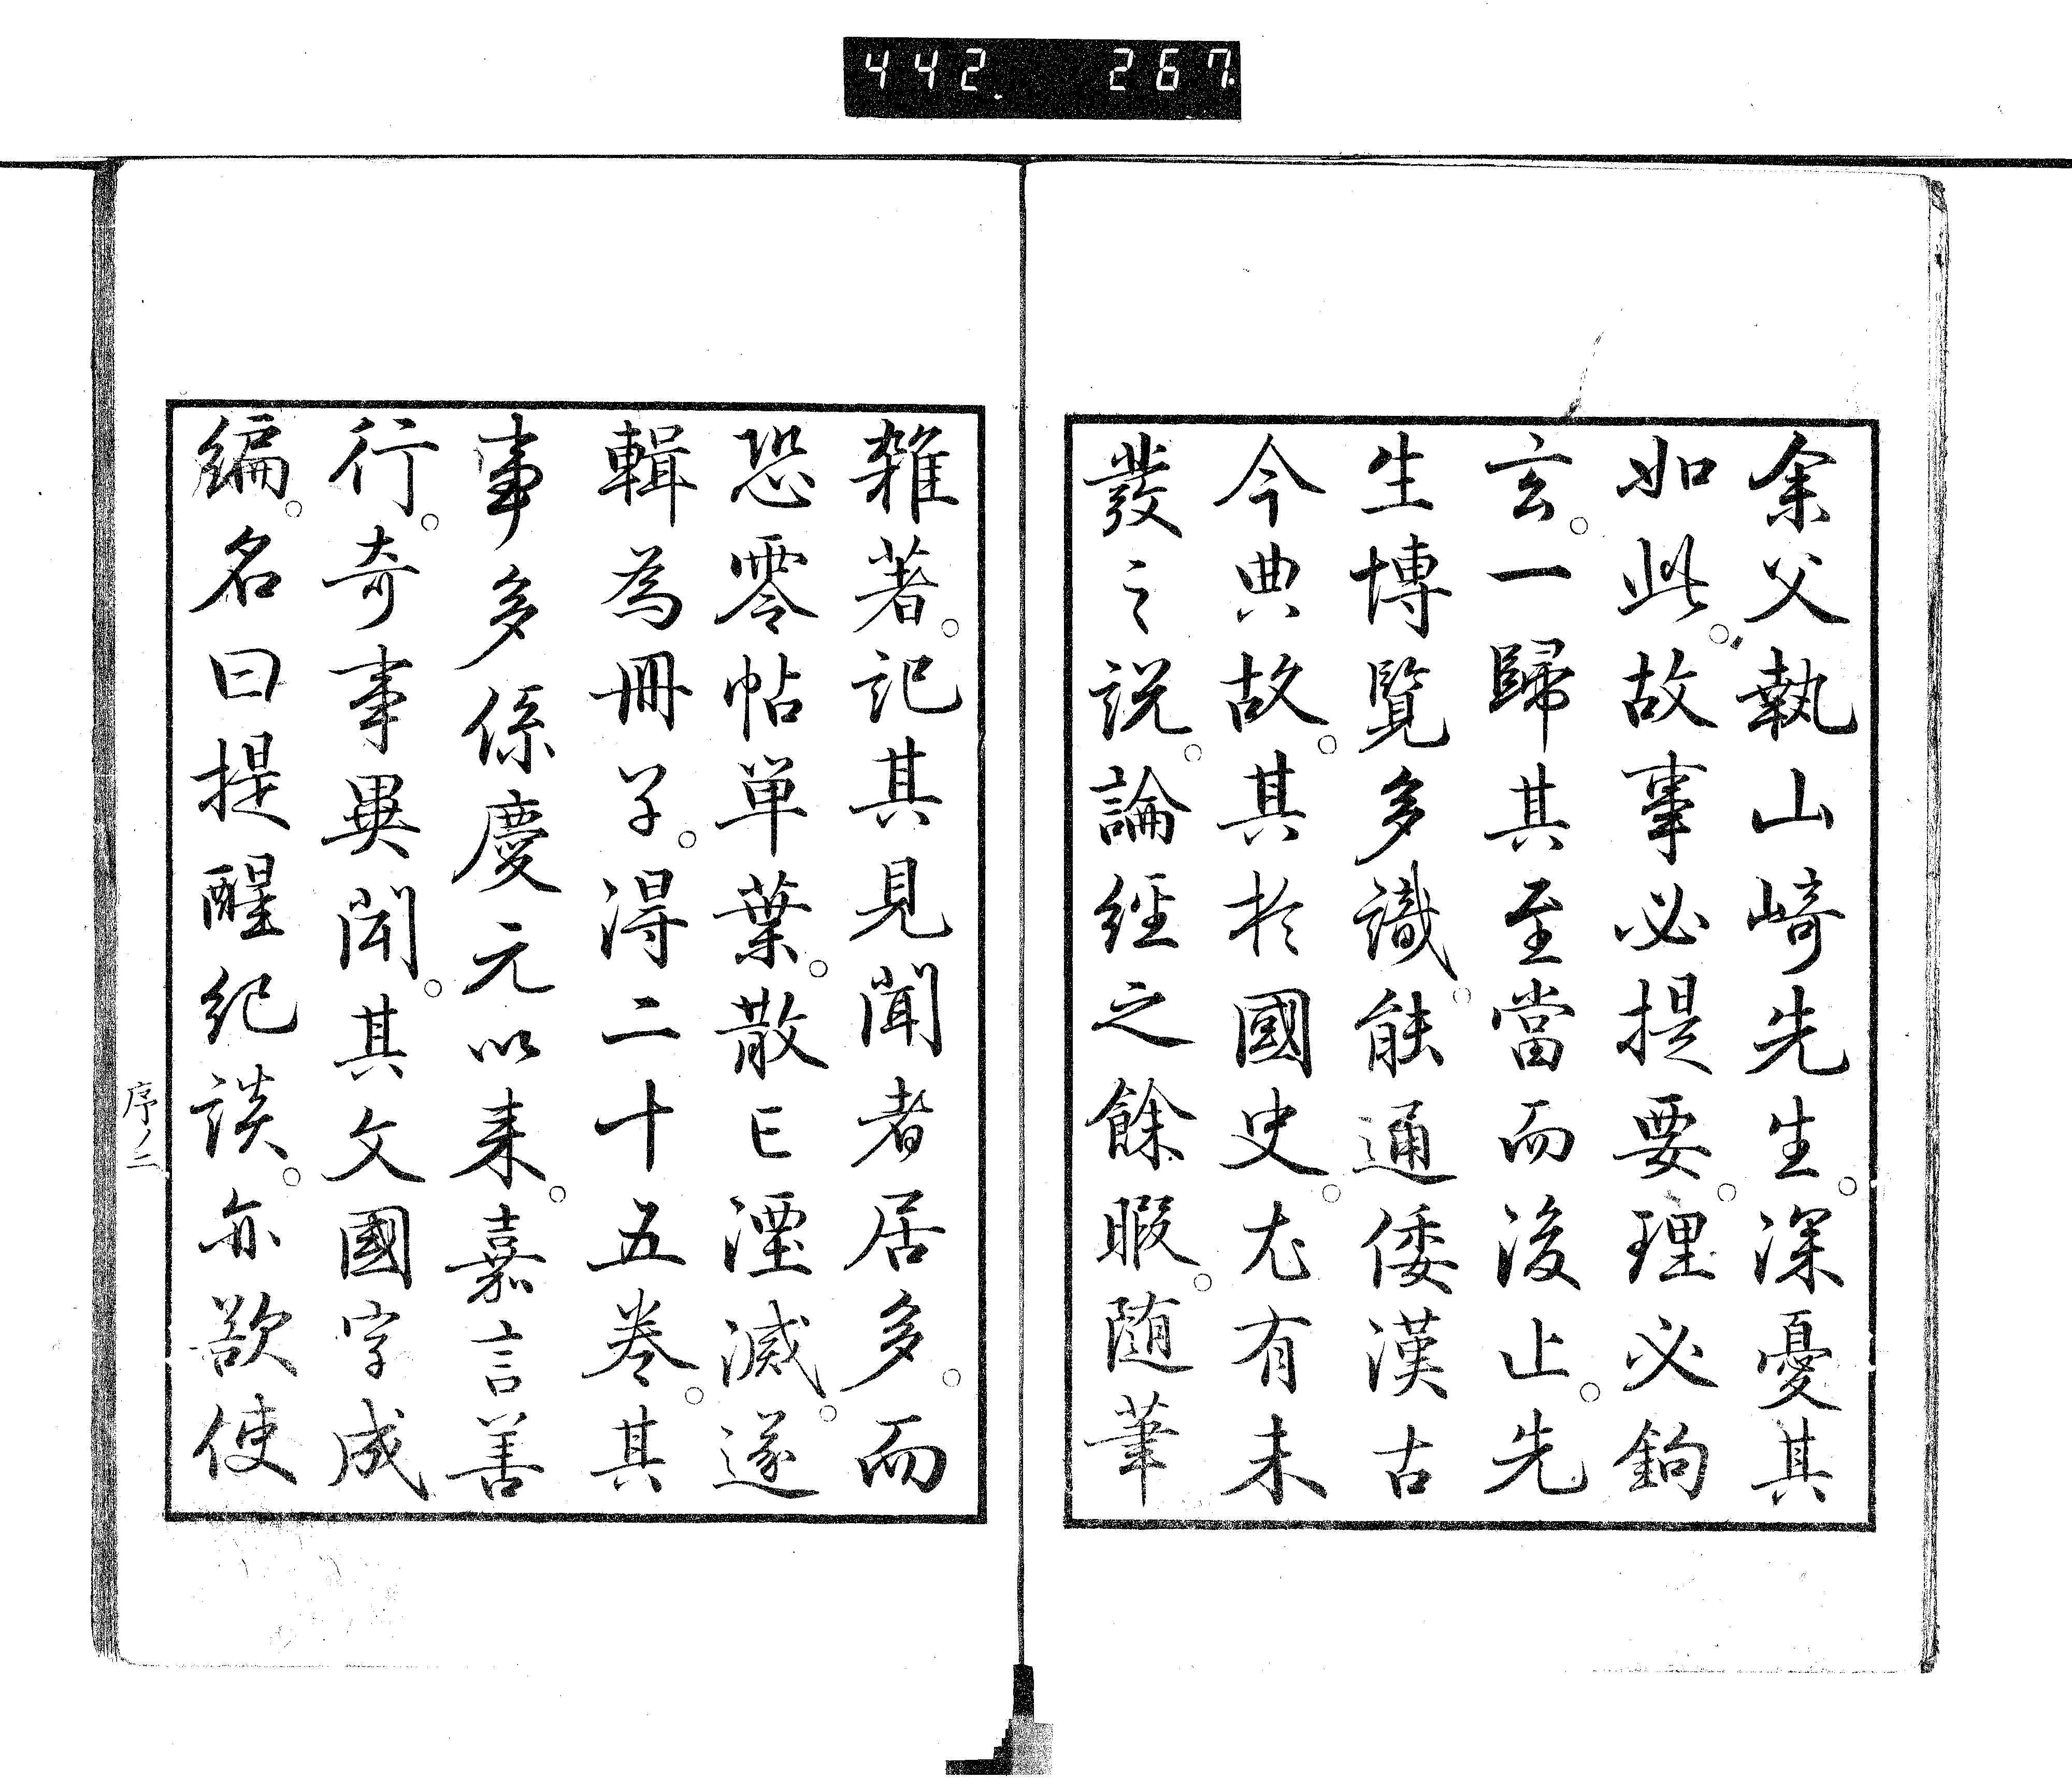 442. 267.
余父執山﨑先生。深憂其
如此。故事必提要。理必鉤
玄。一歸其至當而後止。先
生博覽多識。能通倭漢古
今典故。其於國史。尤有未
發之説。論經之餘暇。随筆
雑著。記其見聞者居多。而
恐零帖单葉。散亡湮滅。遂
輯為冊子。得二十五卷。其
事多係慶元以来。嘉言善
行。奇事異聞。其文國字成
編。名曰提醒紀談。亦欲使
序ノ二